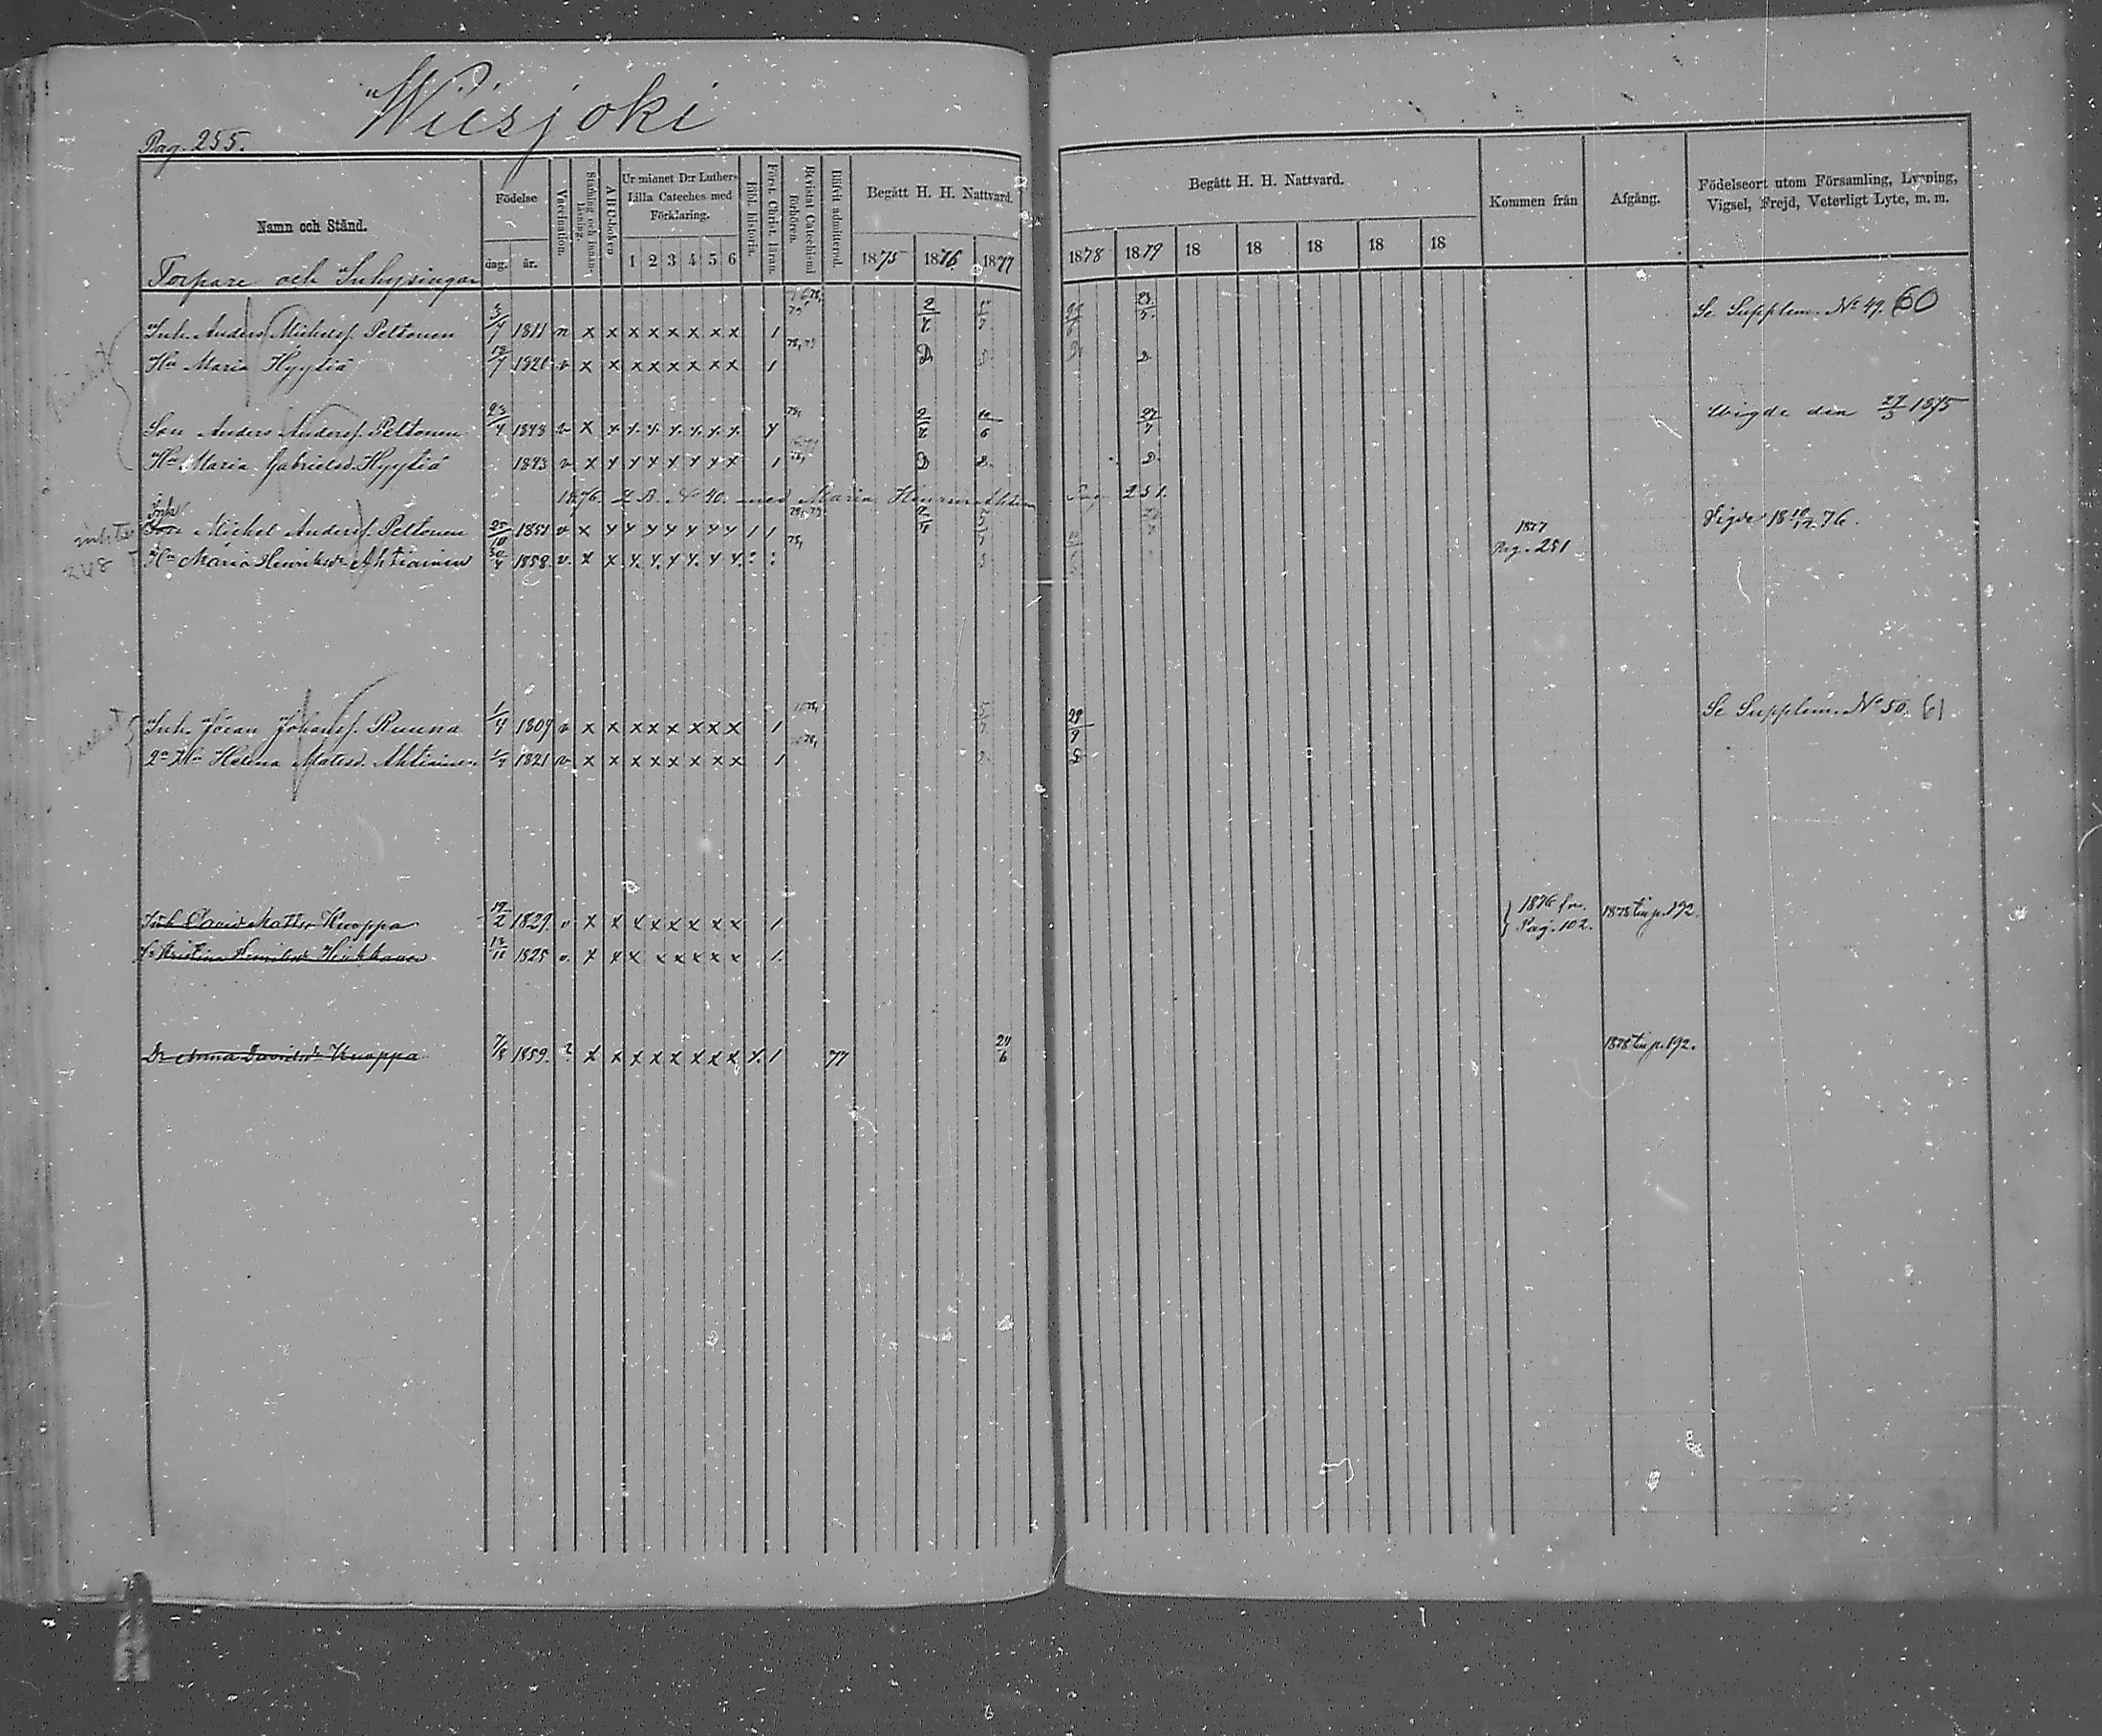 Wiisjoki
Pag. 255.
Namn och Stånd.
Födelse
dag. år.
Vaccination.
Stafning och innanläsning.
ABC-boken
Ur minnet D:r Luthers Lilla Cateches med Förklaring.
1 2 3 4 5 6
Bibl. historia.
Först. Christ. läran.
Bevistat Catechismi förhören.
Blifvit admitterad.
Begått H. H. Nattvard.
1875 1876 1877
Begått H. H. Nattvard.
1878 1879 18 18 18 18 18
Kommen från
Afgång.
Födelseort utom Församling, Lysning, Vigsel, Frejd, Veterligt Lyte, m. m.
Torpare och Inhysingar
Inh. Anders Michelsf. Peltonen 3/7 1811 n x x x x x x x x 1 2/7 25/5 Se Supplem. No 49. 60
Hu Maria Hyytiä 1820 v x x x x x x x x 1 78, 79 D. D.
Son Anders Andersf. Peltonen 23/4 1848 v x 78, 10/6 27/7 Wigde den 27/3 1875
Hu Maria Gabrielsd. Hyytiä 1843 v x D. D. D.
1876 L.B. No 40. med Maria Henriksd. Ahtiainen Pag. 251.
Inh. Son Michel Andersf. Peltonen 25/10 1851 v x 1 1 1877 Pag. 251 Vigde 18 10/12 76.
Hu Maria Henriksdr Ahtiainen 30/4 1858 v. x x 78,
248
Inh. Jöran Johansf. Ruuna 1/4 1809 v x x x x x x x x 1 Se Supplem. No 50. 61
2a Hu Helena Matsd. Ahtiainen 1821 v x x x x x x x x 1 D
Inh. David Mattsr Kuoppa 19/2 1829. v x x x x x x x x 1 1876 frn. Pag. 102. 1878 till p. 192.
Hu Kristina Henriksdr Heikkanen 1825 v. x x x x x x x x 1.
Dr Anna Davidsdr Kuoppa 7/8 1859. ? x x x x x x x x x. 1 77 24/6 1878 till p. 192.